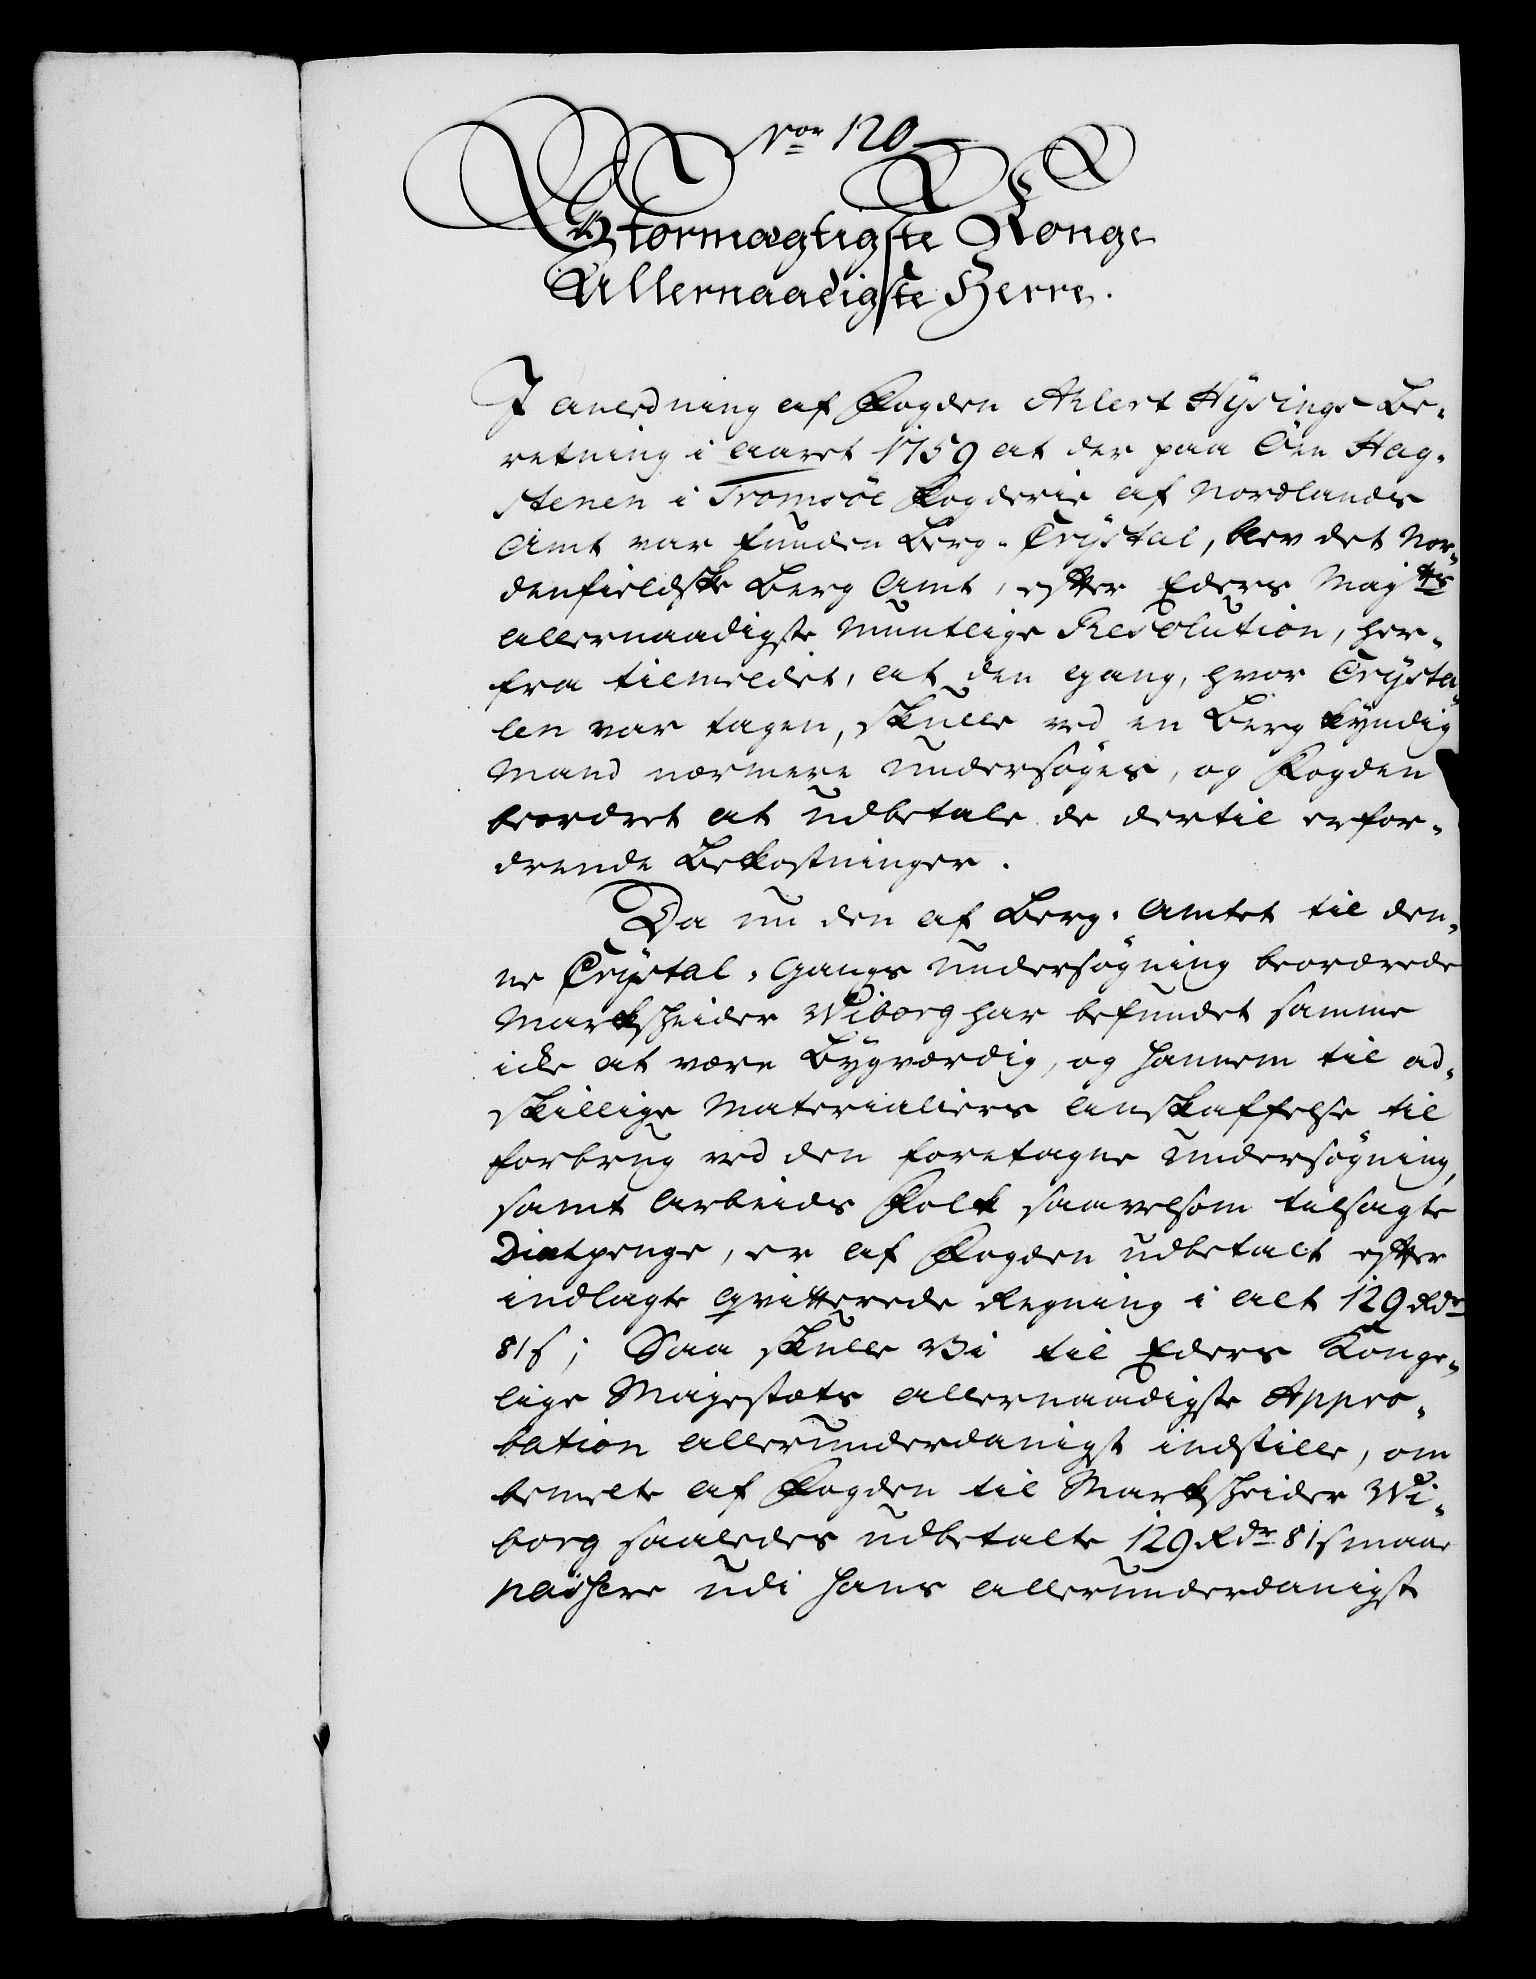 No: 120
Stormægtigste Konge
Allernaadigste Herre.
I anledning af Fogden Ahlert Hÿsings Be-
retning i aaret 1759 at der paa Öen Hag-
stenen i Tromsöe Fogderie af Nordlands
Amt var funden Berg-Crÿstal, blev det Nor-
denfieldske Berg Amt, efter Eders Maj ts
allernaadigste Mundtlige Resolution, her-
fra tilmeldet, at den gang, hvor Crÿsta-
len var tagen, skulle ved en Berg kÿndig
Mand nærmere undersöges, og Fogden
beordret at udbetale de dertil erfor-
drende Bekostninger.
Da nu den af Berg-Amtet til den-
ne Crÿstal-Gangs undersögning beordrede
Markscheider Wiborg har befundet samme
icke at være Bÿgværdig, og hannem til ad-
skillige Materialiers anskaffelse til
forbrug ved den foretagne undersögning,
samt Arbeids Folk saavelsom tilsagte
Diætpenge, er af Fogden udbetalt efter
indlagte qvitterede Regning i alt 129 Rdr
81 s; Saa skulle Vi til Eders Konge-
lige Majestæts allernaadigste Appro-
bation allerunderdanigst indstille, om
bemelte af Fogden til Markscheider Wi-
borg saaledes udbetalte 129 Rdr 81 s maae
passere udi hans allerunderdanigst